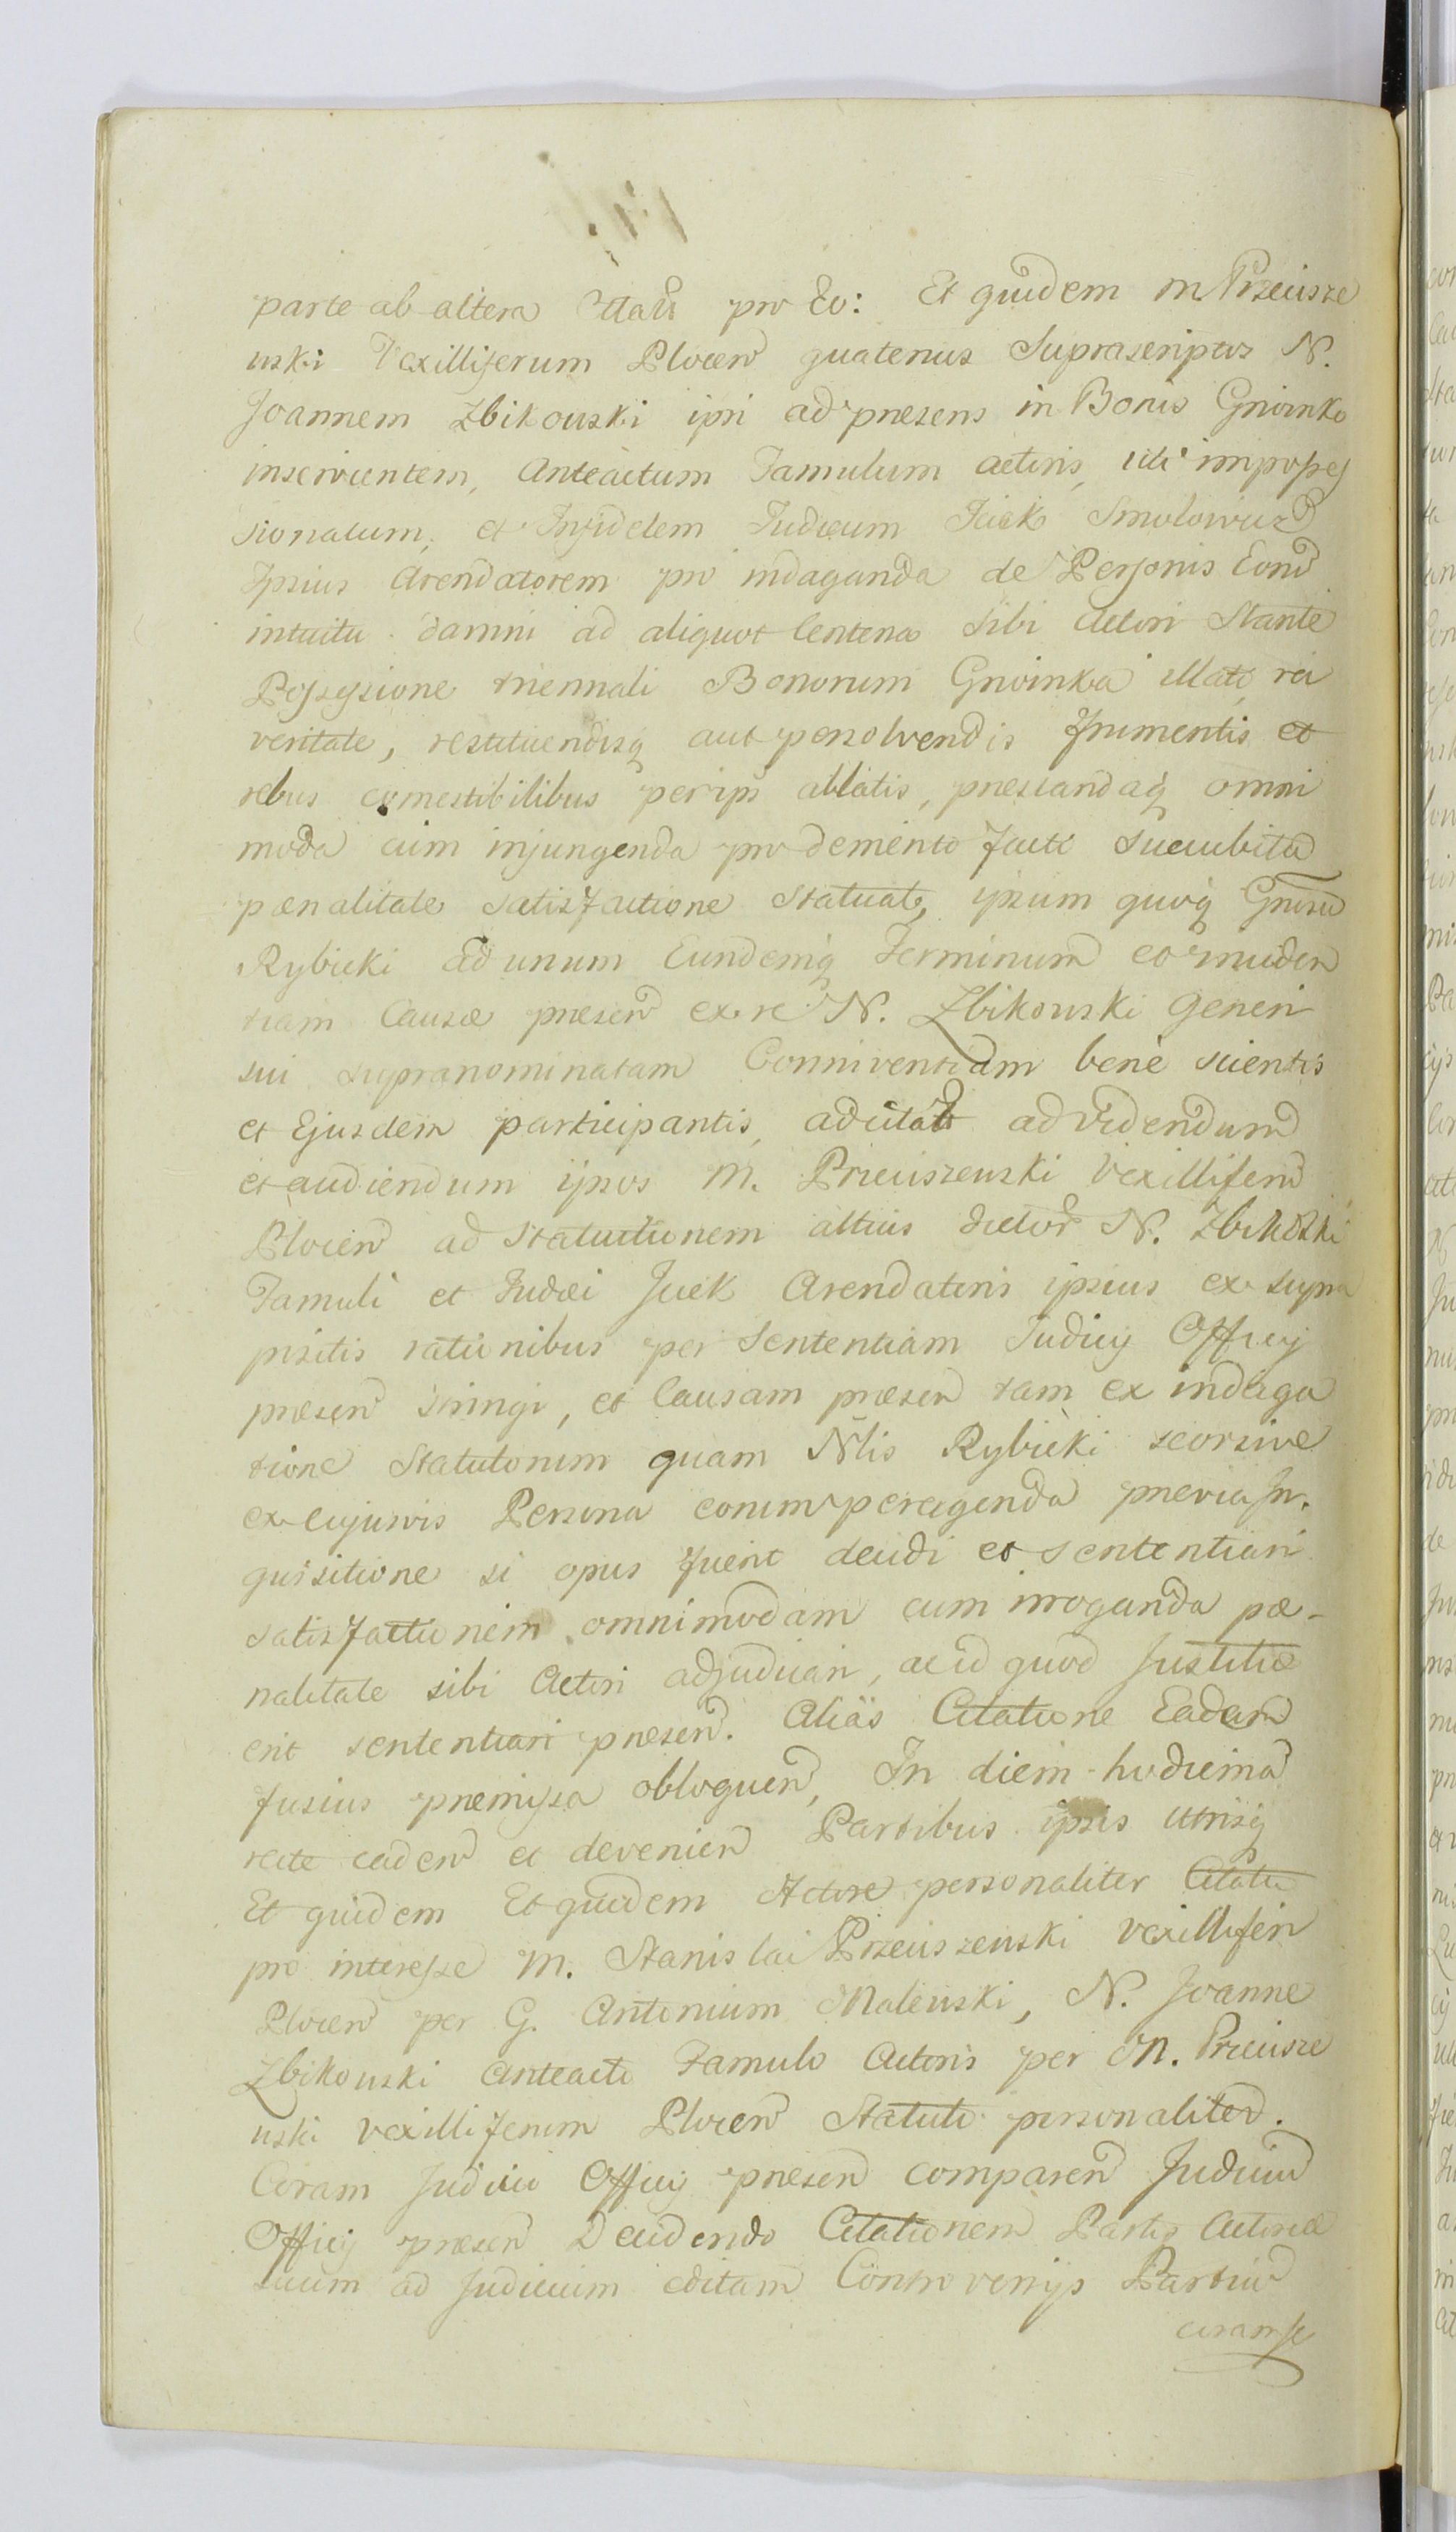 parte ab altera Citatis pro Eo: Et quidem M Przeciszе
wski Vexilliferum Plocen quatenus Suprascriptos N.
Joannem Zbikowski ipsi ad præsens in Bonis Gnoinko
inservientem, Anteactum Famulum actoris, uti imposses
sionatum, et Infidelem Judæum Icek Smolowicz
Ipsius Arendatorem pro indaganda de Personis Eorum
intuitu damni ad aliquot Centena sibi Actori Stante
Possessione triennali Bonorum Gnoinka illati, rei
veritate, restituendisq aut persolvendis frumentis et
rebus comestibilibus per ips ablatis, præstandaq omni
moda cum injungenda pro demerito facti succubita
pænalitate satisfactione Statuat, ipsum quoq
Rybicki ad unum Eundemq Terminum et eviden
tiam Causæ præsen ex re N. Zbikowski Generi
sui supranominatam Conniventiam bene scientis
et Ejusdem participantis, adcitat ad videndum
et audiendum ipsos M. Przeciszewski Vexillifer
Plocen ad Statuitionem altius dictor N. Zbikowski
Famuli et Judæi Icek Arendatoris ipsius ex supra
positis rationibus per Sententiam Judicij Officij
præsen stringi, et Causam præsen tam ex indaga
tione Statutorum quam Nblis Rybicki seorsive
ex cujusvis Persona eorum peragenda prævia In-
quisitione si opus fuerit decidi et sententiari
satisfactionem omnimodam cum irroganda pæ-
nalitate sibi Actori adjudicari, ac id quod Justitiæ
erit sententiari præsen. Aliàs Citatione Eadem
fusius præmissa obloquen, In diem hodierna
recte caden et devenien Partibus ipsis utrisq
Et quidem Et quidem Actore personaliter Citatis
pro interesse M. Stanislai Przeciszewski Vexilliferi
Plocen per G. Antonium Malewski, N. Joanne
Zbikowski Anteacti Famulo Actoris per M. Przecisze
wski Vexilliferum Plocen Statuto personaliter.
Coram Judicio Officij præsen comparen Judicium
Officij præsen Decidendo Citationem Partis Actoreæ
suum ad Judicium editam Controversijs Partium
coram se